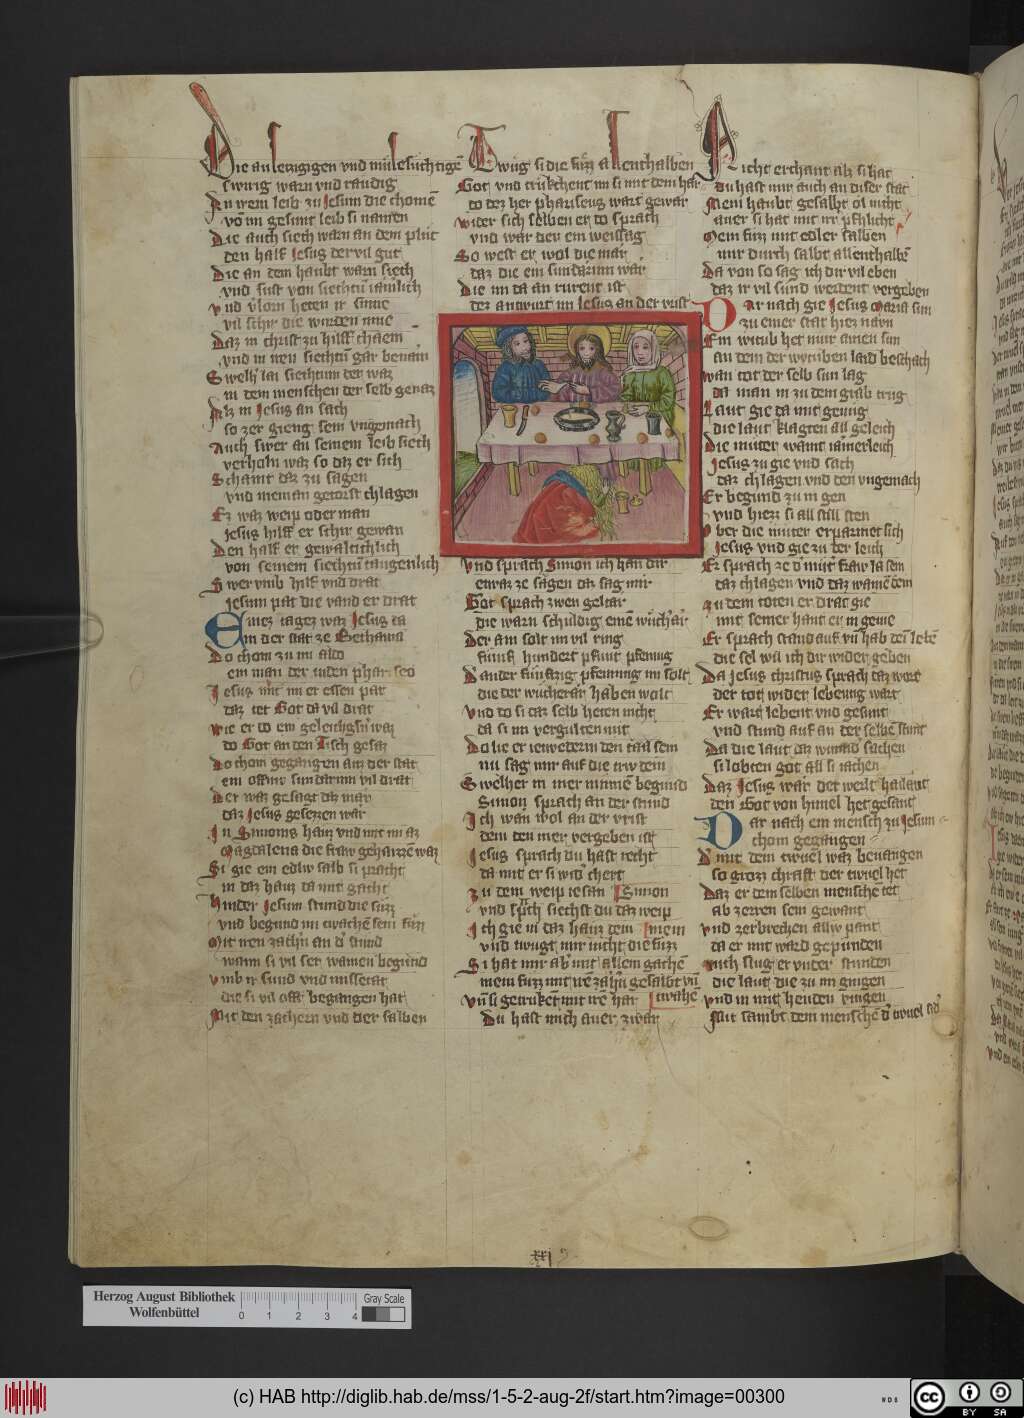 Die auszzigigen vnd mislsuchtigē
swirig warn vnd raudig
An irem leib zu Jesum die chomē
vō im gesunt leib si namen
Die auch siech warn an dem plut
den half Jesus der vil gut
Die an dem haubt warn siech
vnd sust von siechtū
vnd vlorn heten ir sinne
vil schir die wurden inne
Daz in christ zu hilff chaem
vnd in iren siechtū gar benam
Swelh lai siechtum der waz
in dem menschen der selb genaz
Alz in Jesus an sach
so zer gieng sein vngemach
Auch swer an seinem leib siech
verholn waz so daz er sich
Schamt daz zu sagen
vnd nieman getorst chlagen
Ez waz weip oder man
Jesus hilff er schir gewan
Den half er gewaltichlich
von seinem siechtū taugenlich
Swer vmb hilf vnd drat
Jesum pat die vand er drat
Einez tagez waz Jesus da
in der stat ze Bethania
Do chom zu im aldo
ein man der iuden phariseo
Jesus mit im er essen pat
daz tet Got da vil drat
wie er do ein geleichsn' waz
do Got an den Tisch gesaz
Do chom gegangen auz der stat
ein offniv sundarinn vil drat
Der waz gesagt dz mar
daz Jesus gesezzen war
In Simonis hauz vnd mit im az
Magdalena die fraw gehaizzē waz
Si gie ein edliv salb si pracht
in daz hauz da mit gacht
Hinder Jesum stund die fuzz
vnd begund im twachē sein fuzz
Mit iren zachn an d' stund
wann si vil ser wainen begund
vmb ir sund vnd missetat
die si vil offt begangen hat
Mit den zachern vnd der salben
Twug si die fuzz allenthalben
Got vnd trukchent im si mit dem har
do dez her phariseus wart gewar
wider sich selben er do sprach
vnd war der ein weissag
So west er wol die mar
daz die ein sundarinn war
Die in da an rurent ist
dez antwurt im Jesus an der vrist
vnd sprach Simon ich han dir
etwaz ze sagen daz sag mir
Got sprach zwen geltar
die warn schuldig einē wuch'ar
Der ain solt im vil ring
fumf hundert pfunt pfennig
D' ander funfzig pfenning im solt
die der wucherar haben wolt
vnd do si daz selb heten nicht
da si im vergulten mit
Do lie er ietwederm den tail sein
nu sag mir auf die triw dein
Swelher in mer minnē begund
Simon sprach an der stund
Ich wān wol an der vrist
dem den mer vergeben ist
Jesus sprach du hast recht
da mit er si wid' chert
Zu dem weip iesan Simon
vnd sprch siechst du daz weip
Ich gie in daz hauz dein
vnd twugt mir nicht die fuzz
Si hat mir ab' mit allem gachē
mein fuzz mit irē zahn gesalbt vn
vn si getruket mit irē har twahē
Du hast mich auer zwar
Nicht erchant alz si hat
du hast mir auch an diser stat
Mein haubt gesalbt öl nicht
auer si hat mit irr pflicht
Mein fuzz mit edler salben
mir durch salbt allenthalbē
Da von so sag ich dir vil eben
daz ir vil sund werdent vergeben
Dar nach gie Jesus Maria sun
zu einer stat hiez naym
Ein witub het nuir ainen sun
an dem der wytuben laid beschach
wan tot der selb sun lag
da man in zu dem grab trug
Laut gie da mit genug
die laut klagten all geleich
Die muter waint iamerleich
Jesus zu gie vnd sach
daz chlagen vnd den vngemach
Er begund zu in gen
vnd hiezz si all still sten
vber die muter erparmet sich
Jesus vnd gie zu der leich
Er sprach ze d' mut' fraw la sein
daz chlagen vnd daz wainē dein
zu dem toten er drat gie
mit seiner hant er in gevie
Er sprach stand auf vn hab dei lebē
die sel wil ich dir wider geben
Da Jesus christus sprach daz wort
der tot wider lebentig wart
Er wart lebent vnd gesunt
vnd stund auf an der selbē stunt
Da die laut daz wund' sachen
si lobten got all si iachen
Daz Jesus war der werlt hailant
den Got von himel het gesant
Dar nach ein mensch zu Jesum
chom gegangen
D' mit dem tiuuel waz beuangen
so grozz chrafft der tiuuel het
Daz er dem selben menschē tet
ab zerren sein gewant
vnd zerbrechen alliv pant
da er mit ward gepunden
Auch slug er vnder stunden
die laut die zu im giengen
vnd in mit henden viengen
Mit sambt dem menschē d' tiuuel
xxj
Herzog August Bibliothek
Wolfenbüttel
0 1 2 3 4
Gray Scale
(c) HAB http://diglib.hab.de/mss/1-5-2-aug-2f/start.htm?image=00300
WDB
cc
BY SA